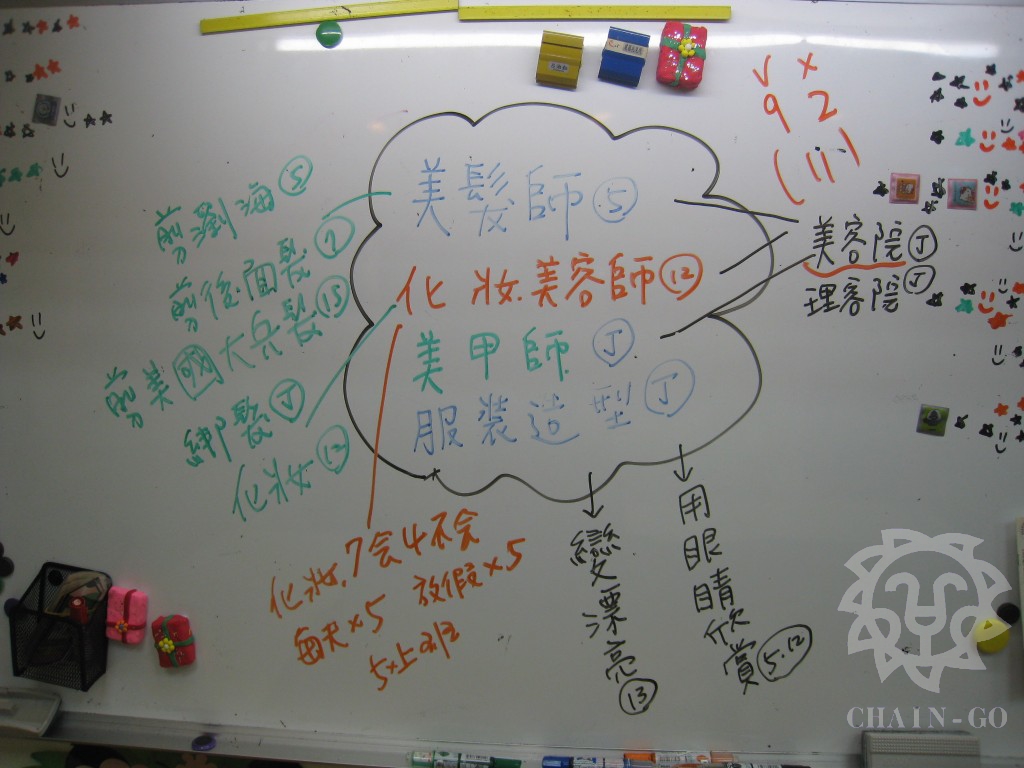 美髮師⑤
化妝.美容師⑫
美甲師Ⓙ
服裝造型Ⓙ
剪瀏海⑤
剪後面髮⑦
剪美國大兵髮⑬
綁髮Ⓙ
化妝⑫
化妝.7会4不会
每天×5 放假×5
∨ ×
9 2
(11)
美容院Ⓙ
理客院Ⓙ
變漂亮⑬
用眼睛欣賞⑤.⑫
CHAIN-GO